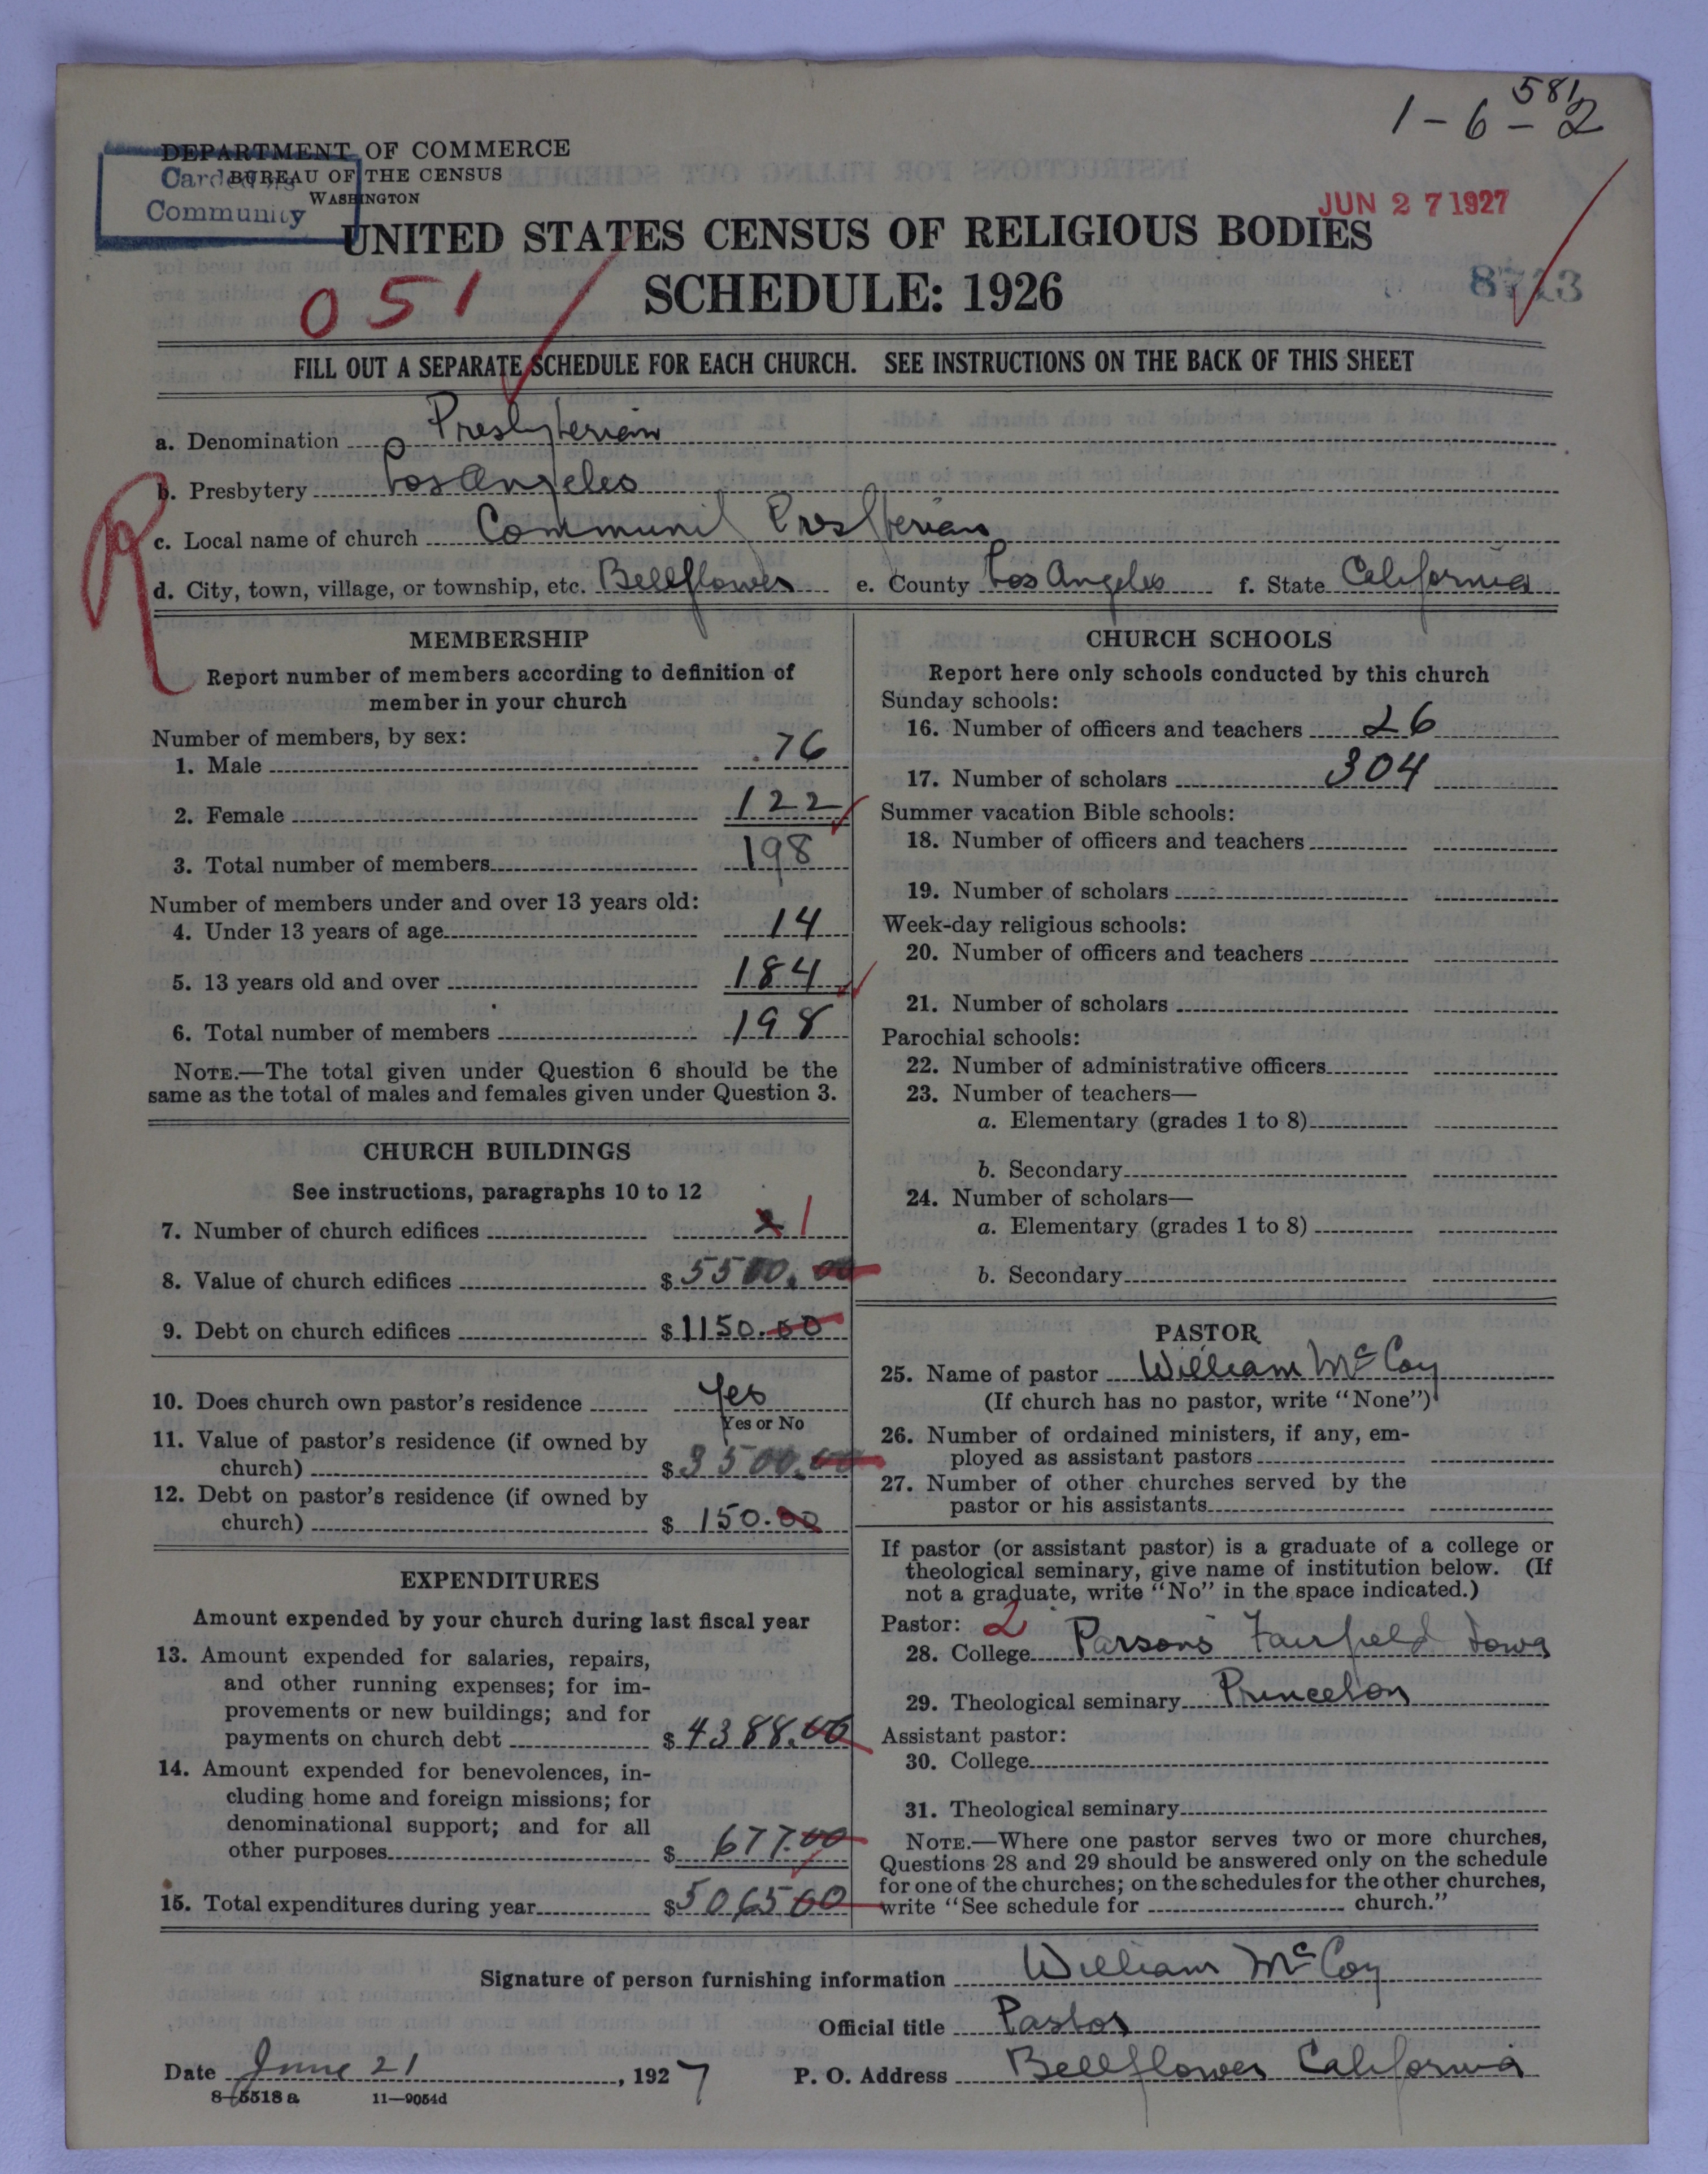 1 - 6 - 2
581
DEPARTMENT OF COMMERCE
BUREAU OF THE CENSUS
WASHINGTON
Carded as
Community
JUN 27 1927
UNITED STATES CENSUS OF RELIGIOUS BODIES
SCHEDULE: 1926
051
FILL OUT A SEPARATE SCHEDULE FOR EACH CHURCH. SEE INSTRUCTIONS ON THE BACK OF THIS SHEET
a. Denomination Presbyterian
b. Presbytery Los Angeles
R
c. Local name of church Community Presbyterian
d. City, town, village, or township, etc. Bellflower e. County Los Angeles f. State California
MEMBERSHIP
Report number of members according to definition of
member in your church
Number of members, by sex:
1. Male 76
2. Female 122
3. Total number of members 198
Number of members under and over 13 years old:
4. Under 13 years of age 14
5. 13 years old and over 184
6. Total number of members 198
NOTE.—The total given under Question 6 should be the
same as the total of males and females given under Question 3.
CHURCH BUILDINGS
See instructions, paragraphs 10 to 12
7. Number of church edifices 1
8. Value of church edifices $5500.00
9. Debt on church edifices $1150.00
10. Does church own pastor's residence Yes
Yes or No
11. Value of pastor's residence (if owned by
church) $3500.00
12. Debt on pastor's residence (if owned by
church) $150.00
EXPENDITURES
Amount expended by your church during last fiscal year
13. Amount expended for salaries, repairs,
and other running expenses; for im-
provements or new buildings; and for
payments on church debt $4388.00
14. Amount expended for benevolences, in-
cluding home and foreign missions; for
denominational support; and for all
other purposes $677.00
15. Total expenditures during year $5065 00
CHURCH SCHOOLS
Report here only schools conducted by this church
Sunday schools:
16. Number of officers and teachers 26
17. Number of scholars 304
Summer vacation Bible schools:
18. Number of officers and teachers
19. Number of scholars
Week-day religious schools:
20. Number of officers and teachers
21. Number of scholars
Parochial schools:
22. Number of administrative officers
23. Number of teachers—
a. Elementary (grades 1 to 8)
b. Secondary
24. Number of scholars—
a. Elementary (grades 1 to 8)
b. Secondary
PASTOR
25. Name of pastor William McCoy
(If church has no pastor, write "None")
26. Number of ordained ministers, if any, em-
ployed as assistant pastors
27. Number of other churches served by the
pastor or his assistants
If pastor (or assistant pastor) is a graduate of a college or
theological seminary, give name of institution below. (If
not a graduate, write "No" in the space indicated.)
Pastor: 2
28. College Parsons Fairfield Iowa
29. Theological seminary Princeton
Assistant pastor:
30. College
31. Theological seminary
NOTE.—Where one pastor serves two or more churches,
Questions 28 and 29 should be answered only on the schedule
for one of the churches; on the schedules for the other churches,
write "See schedule for church."
Signature of person furnishing information William McCoy
Official title Pastor
Date June 21, 1927 P. O. Address Bellflower California
8-5518 a 11-9054d